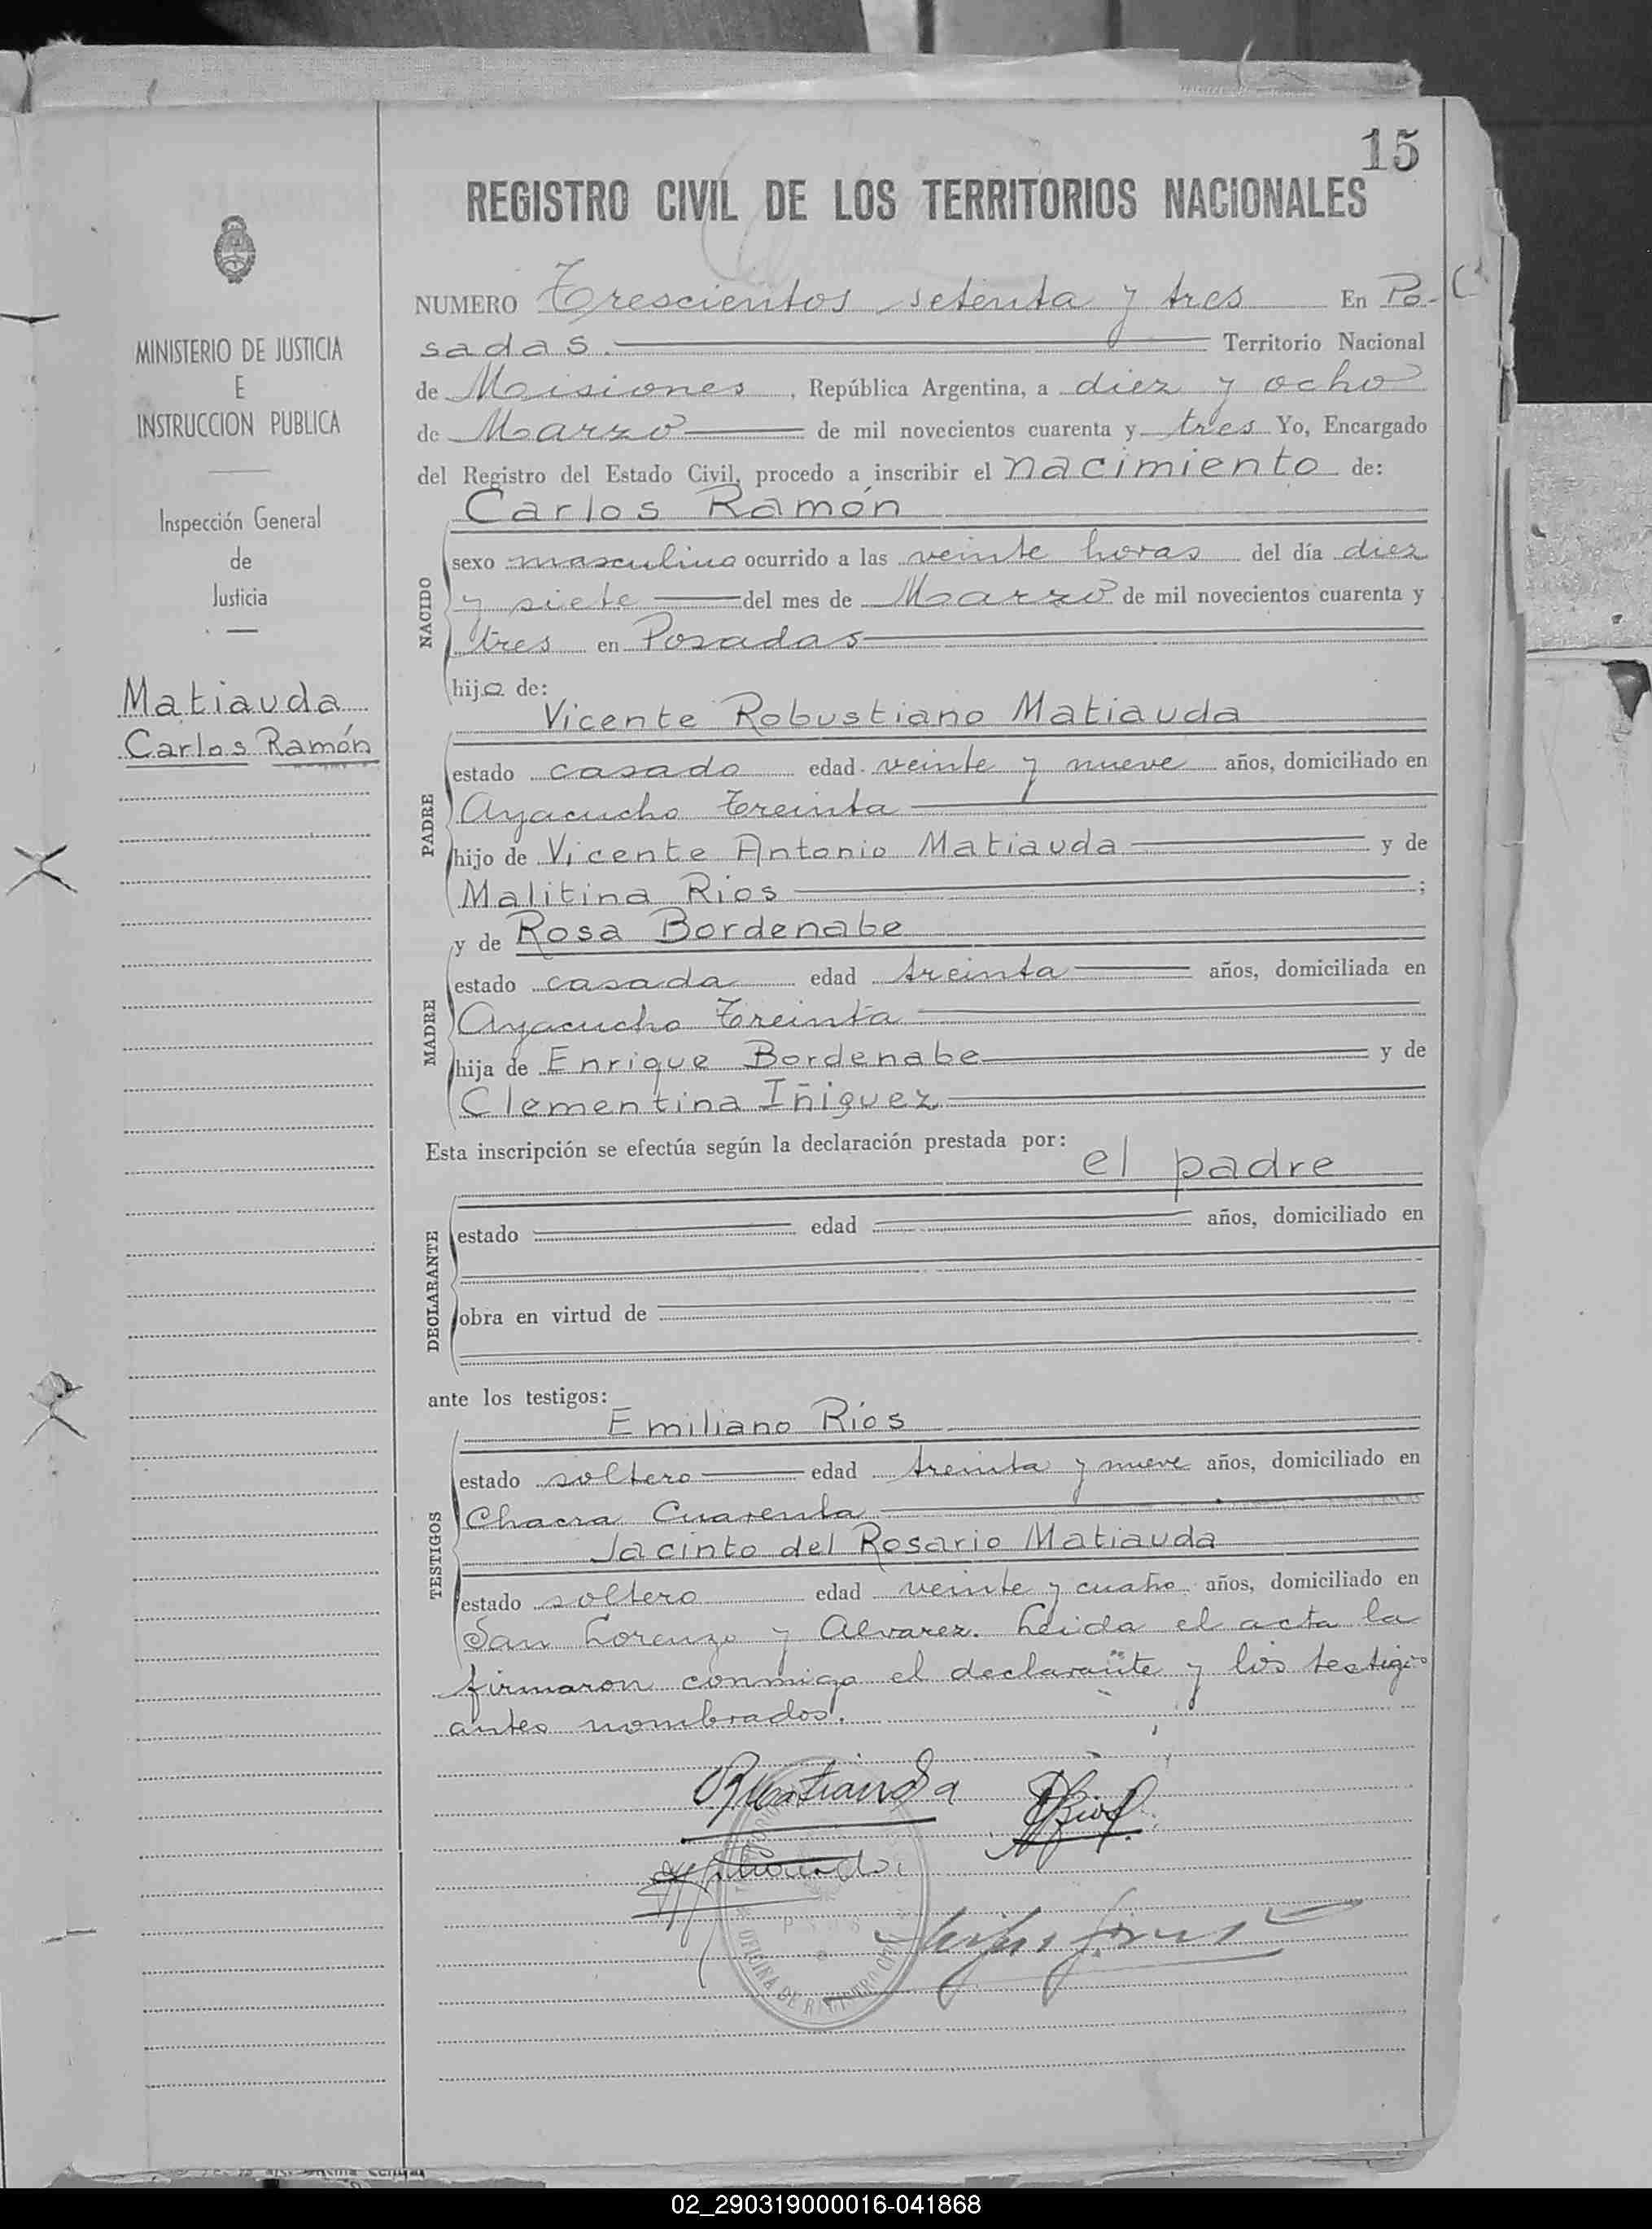 15
REGISTRO CIVIL DE LOS TERRITORIOS NACIONALES
MINISTERIO DE JUSTICIA
E
INSTRUCCION PUBLICA
Inspección General
de
Justicia
Matiauda
Carlos Ramón
NUMERO Trescientos setenta y tres En Po-
sadas. Territorio Nacional
de Misiones, República Argentina, a diez y ocho
de Marzo de mil novecientos cuarenta y tres Yo, Encargado
del Registro del Estado Civil, procedo a inscribir el nacimiento de:
Carlos Ramón
NACIDO
sexo masculino ocurrido a las veinte horas del día diez
y siete del mes de Marzo de mil novecientos cuarenta y
tres en Posadas
hijo de:
Vicente Robustiano Matiauda
PADRE
estado casado edad veinte y nueve años, domiciliado en
Ayacucho Treinta
hijo de Vicente Antonio Matiauda y de
Malitina Rios;
y de Rosa Bordenabe
MADRE
estado casada edad treinta años, domiciliada en
Ayacucho Treinta
hija de Enrique Bordenabe y de
Clementina Iñiguez
Esta inscripción se efectúa según la declaración prestada por: el padre
DECLARANTE
estado edad años, domiciliado en
obra en virtud de
ante los testigos:
Emiliano Ríos
TESTIGOS
estado soltero edad treinta y nueve años, domiciliado en
Chacra Cuarenta
Jacinto del Rosario Matiauda
estado soltero edad veinte y cuatro años, domiciliado en
San Lorenzo y Alvarez. Leida el acta la
firmaron conmigo el declarante y los testigos
antes nombrados.
OFICINA DE REGISTRO
02_290319000016-041868